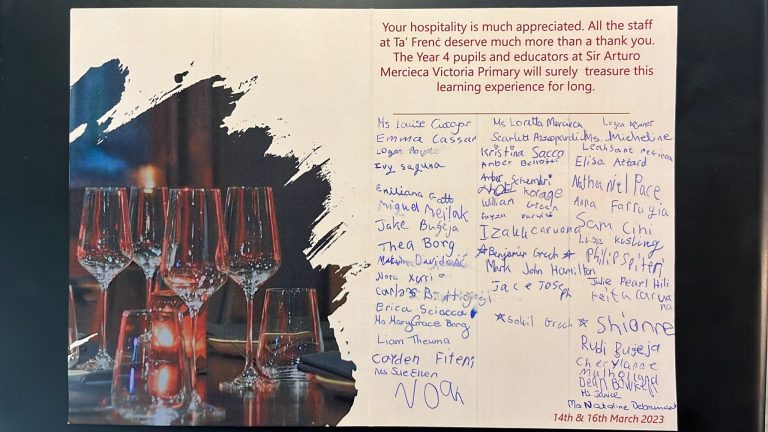 Your hospitality is much appreciated. All the staff
at Ta' Frenċ deserve much more than a thank you.
The Year 4 pupils and educators at Sir Arturo
Mercieca Victoria Primary will surely treasure this
learning experience for long.
Ms Louise
Emma Cassar
Logan
Ivy Saguna
Emiliana
Miguel Mejlak
Jake Bugeja
Thea Borg
Nora Xerri
Carlos B.
Erica Sciacca
Ms MaryGrace Borg
Liam Theuma
Carden Fiteni
Ms SueEllen
NOah
Ms Loretta Mercieca
Scarlett Azzopardi
Kristina Sacco
Amber
Amber Schembri
Korage
William Green
Izakk caruana
Benjamin Grech
Mark John Hamilton
Jace Joseph
Grech
Logan
Ms Micheline
Leahsana
Elisa Attard
Nathaniel Pace
Anna Farrugia
Sam Cini
Philip Spiteri
Julie Pearl Hili
Keith Caruana
Shianne
Rudi Bugeja
Cherylanne
Mulholland
Dean
Ms Janice
Ms Nataline
14th & 16th March 2023